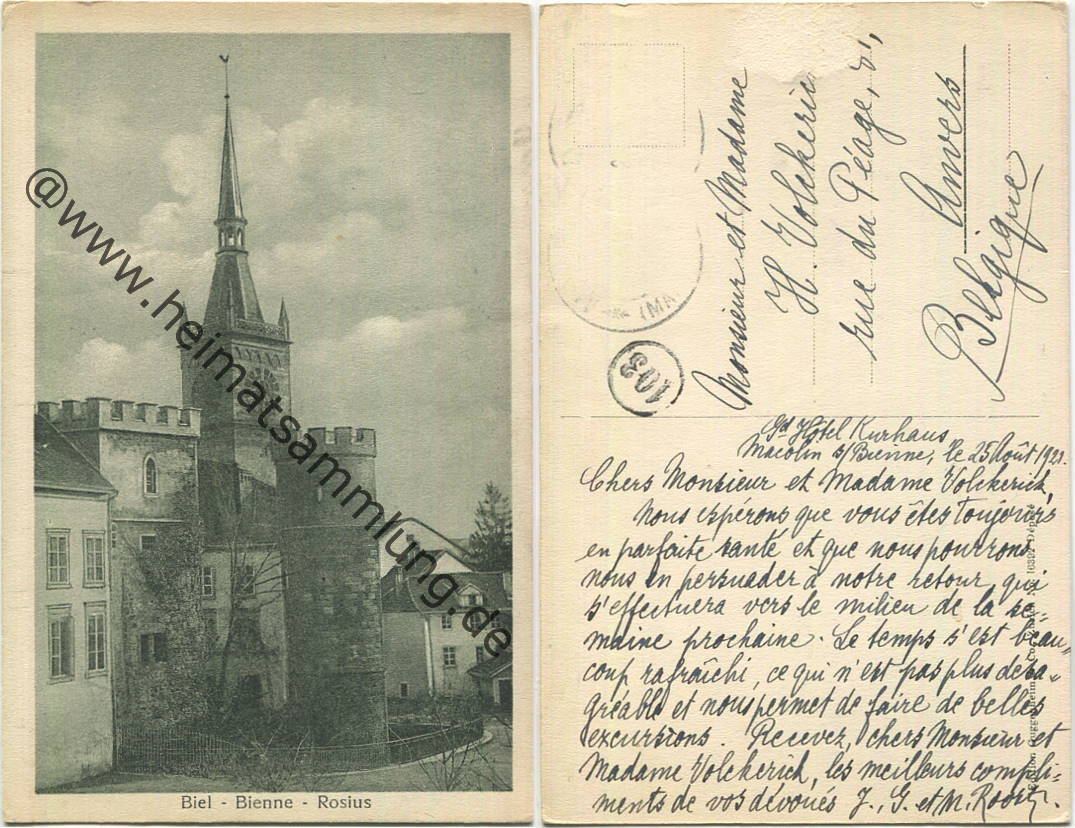 @www.heimatsammlung.de
Biel - Bienne - Rosius
Monsieur et Madame
H. Volckerick
rue du Péage, 21,
Anvers
Belgique
103
Gd Hôtel Kurhaus
Macolin s/Bienne, le 25 Août 192
Chers Monsieur et Madame Volckerick,
Nous espérons que vous êtes toujours
en parfaite santé et que nous pourrons
nous en persuader à notre retour, qui
s'effectuera vers le milieu de la se-
maine prochaine. Le temps s'est beau-
coup rafraîchi, ce qui n'est pas plus désa-
gréable et nous permet de faire de belles
excursions. Recevez, chers Monsieur et
Madame Volckerick, les meilleurs compli-
ments de vos dévoués J., G. et M.